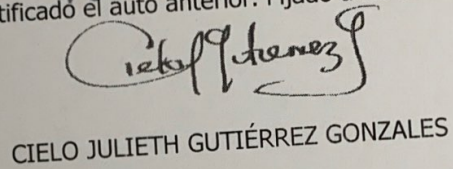 tificado el auto anterior.
Cielo J Gutierrez G
CIELO JULIETH GUTIÉRREZ GONZALES